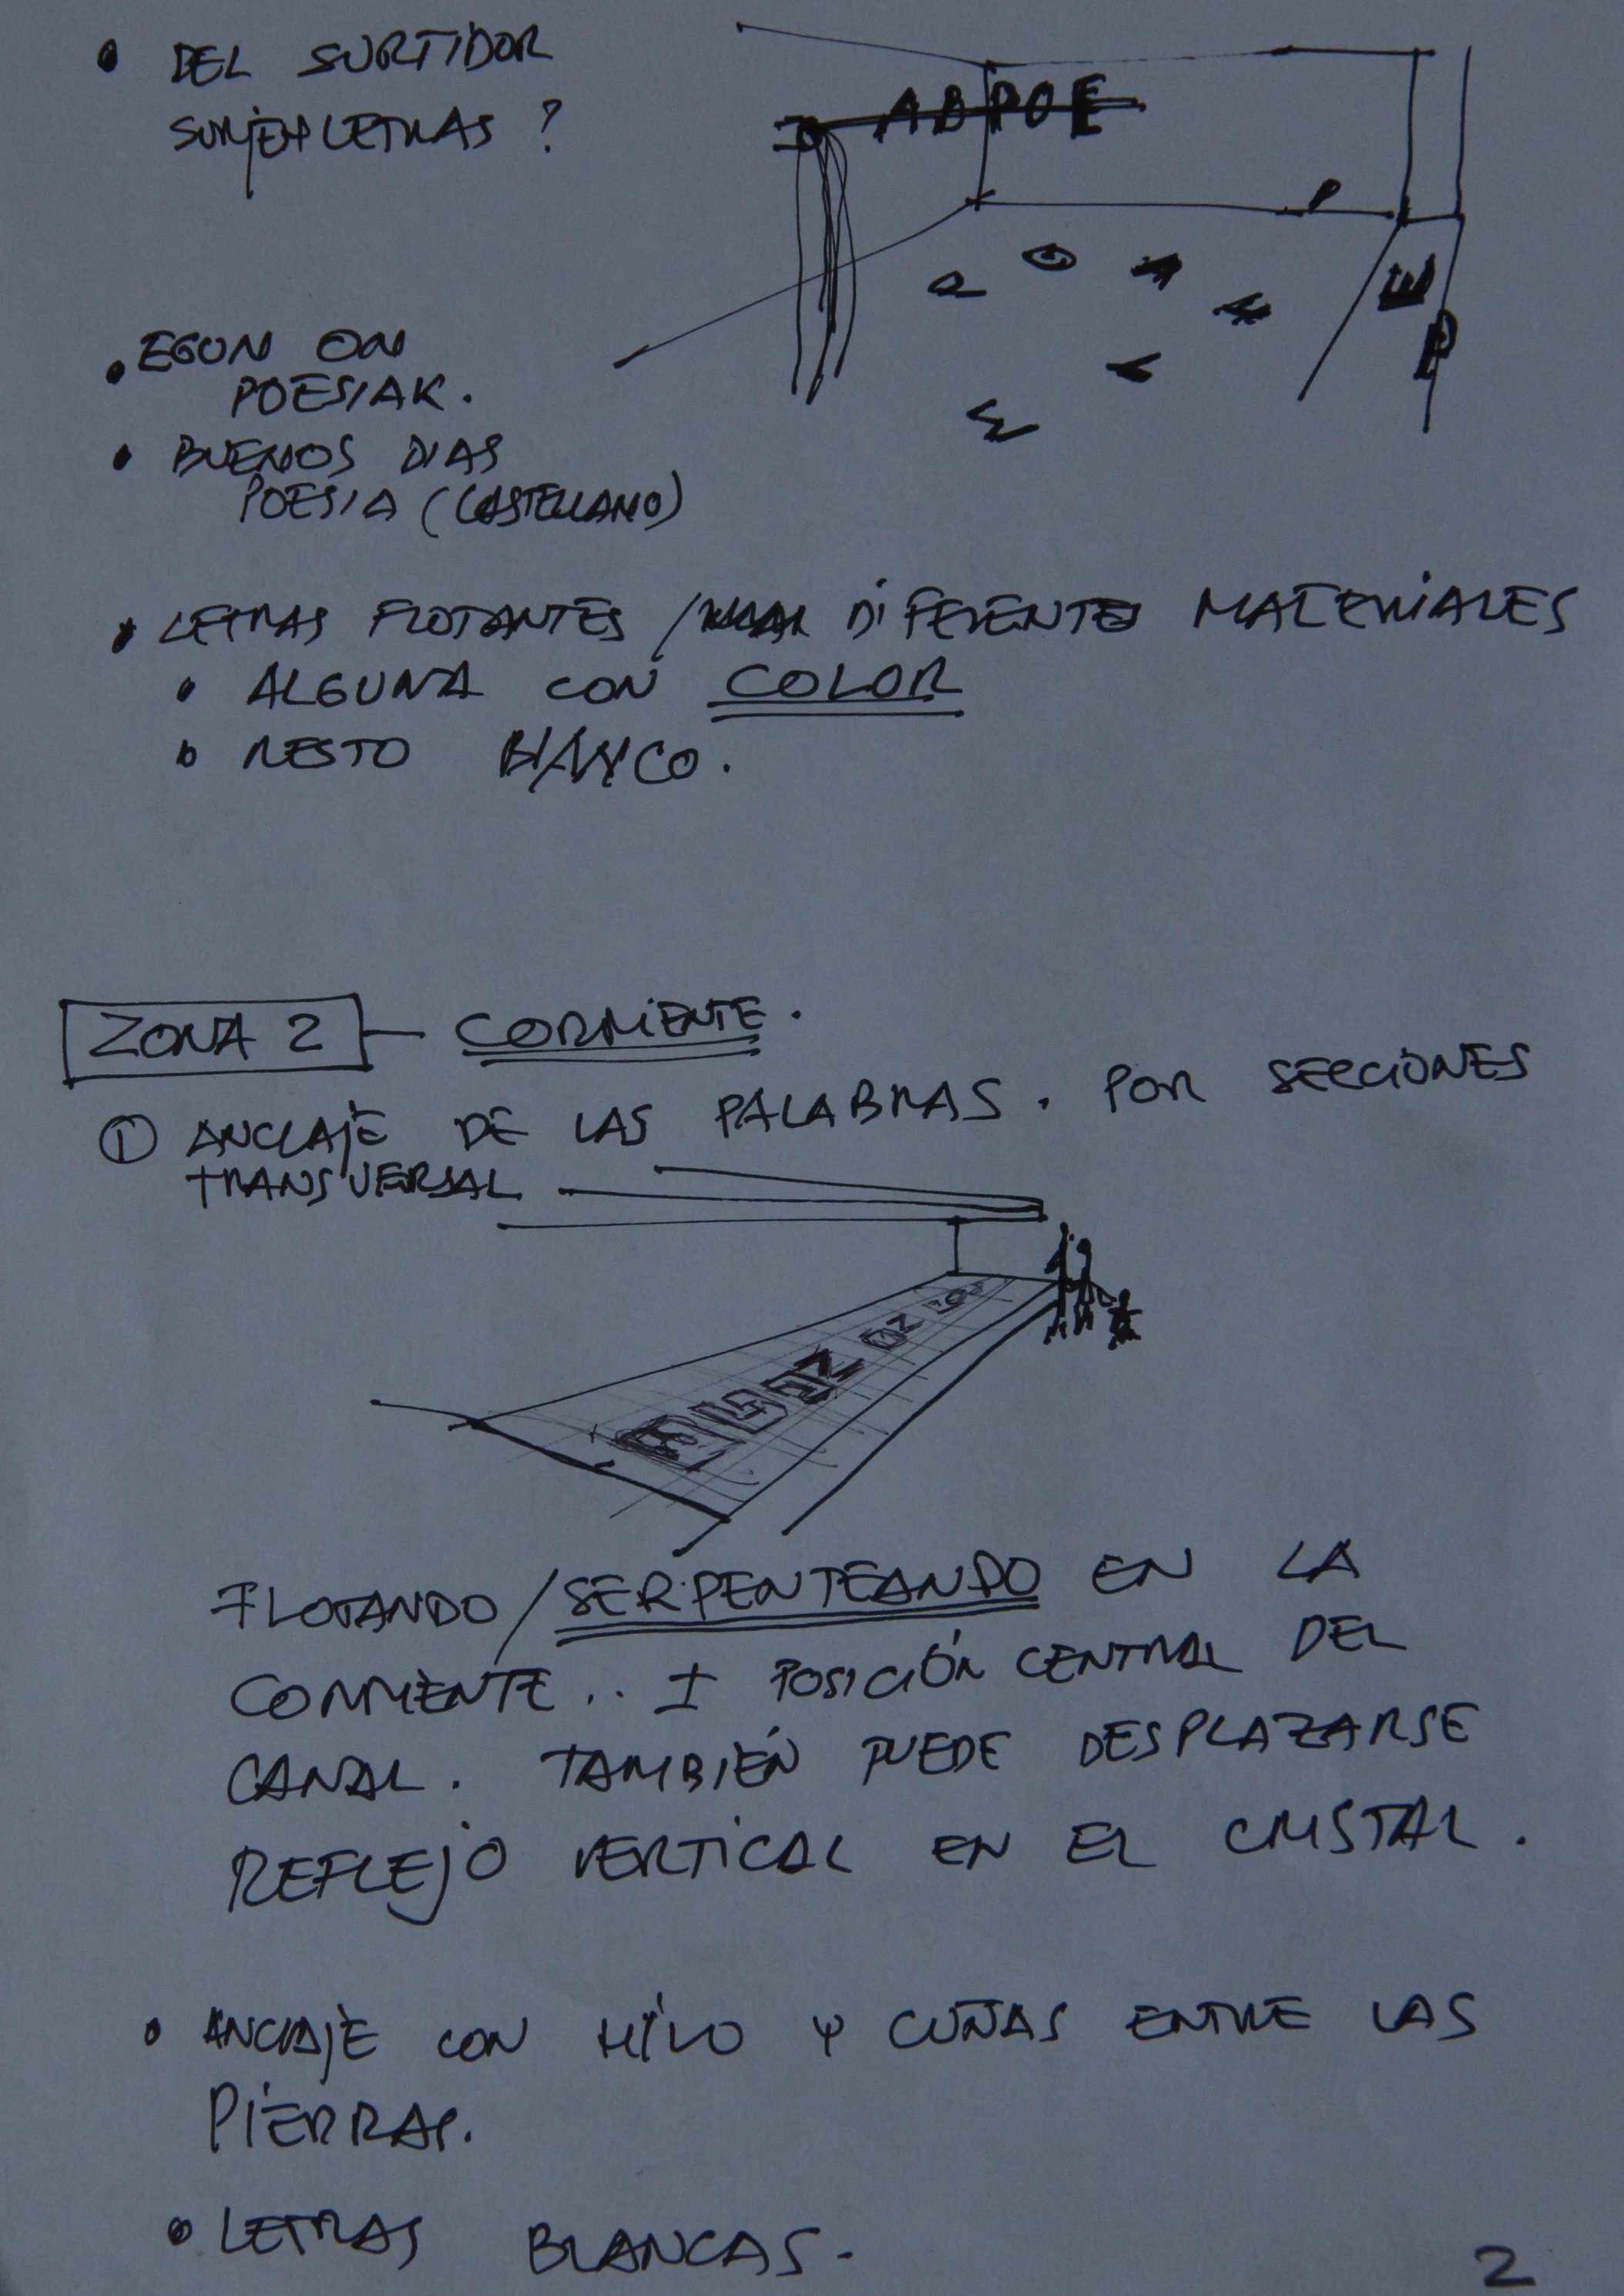 • DEL SURTIDOR
SURJEN LETRAS ?
ABPOE
P
E
P
• EGUN ON
POESIAK.
• BUENOS DIAS
POESIA (CASTELLANO)
• LETRAS FLOTANTES / DIFERENTES MATERIALES
• ALGUNA CON COLOR
• RESTO BLANCO.
ZONA 2 — CORRIENTE.
① ANCLAJE DE LAS PALABRAS. POR SECCIONES
TRANSVERSAL
FLOTANDO / SERPENTEANDO EN LA
CORRIENTE.. ± POSICIÓN CENTRAL DEL
CANAL. TAMBIÉN PUEDE DESPLAZARSE
REFLEJO VERTICAL EN EL CRISTAL.
• ANCLAJE CON HILO Y CUÑAS ENTRE LAS
PIERRAS.
• LETRAS BLANCAS.-
2